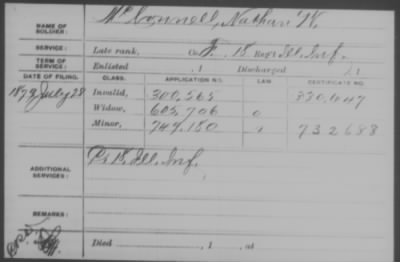 NAME OF SOLDIER: McConnell, Nathan W.
SERVICE: Late rank, Co. F, 18 Reg't Ill. Inf.
TERM OF SERVICE: Enlisted , 1 Discharged , 1
DATE OF FILING. CLASS. APPLICATION NO. LAW CERTIFICATE NO.
1879 July 28 Invalid, 300,565
Widow, 605,706
Minor, 749,150 732688
ADDITIONAL SERVICES: Ill. Inf.
REMARKS:
Died , 1 , at